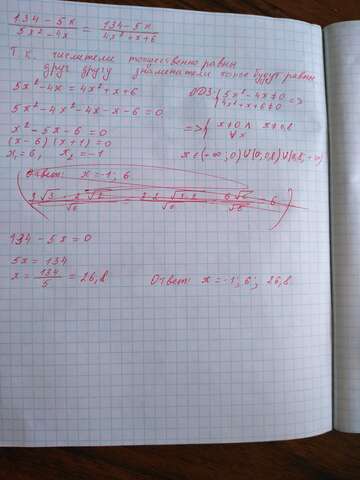 134 - 5x / 5x² - 4x = 134 - 5x / 4x² + x + 6
Т.к. числители тождественно равны
друг другу знаменатели тоже будут равны
5x² - 4x = 4x² + x + 6
ОДЗ: { 5x² - 4x ≠ 0
4x² + x + 6 ≠ 0 =>
5x² - 4x² - 4x - x - 6 = 0
x² - 5x - 6 = 0
=> { x ≠ 0 ∧ x ≠ 0,8
∀x
(x - 6)(x + 1) = 0
x₁ = 6, x₂ = -1
x ∈ (-∞; 0) ∪ (0; 0,8) ∪ (0,8; +∞)
Ответ: x = -1; 6
134 - 5x = 0
5x = 134
x = 134 / 5 = 26,8
Ответ: x = -1; 6; 26,8.